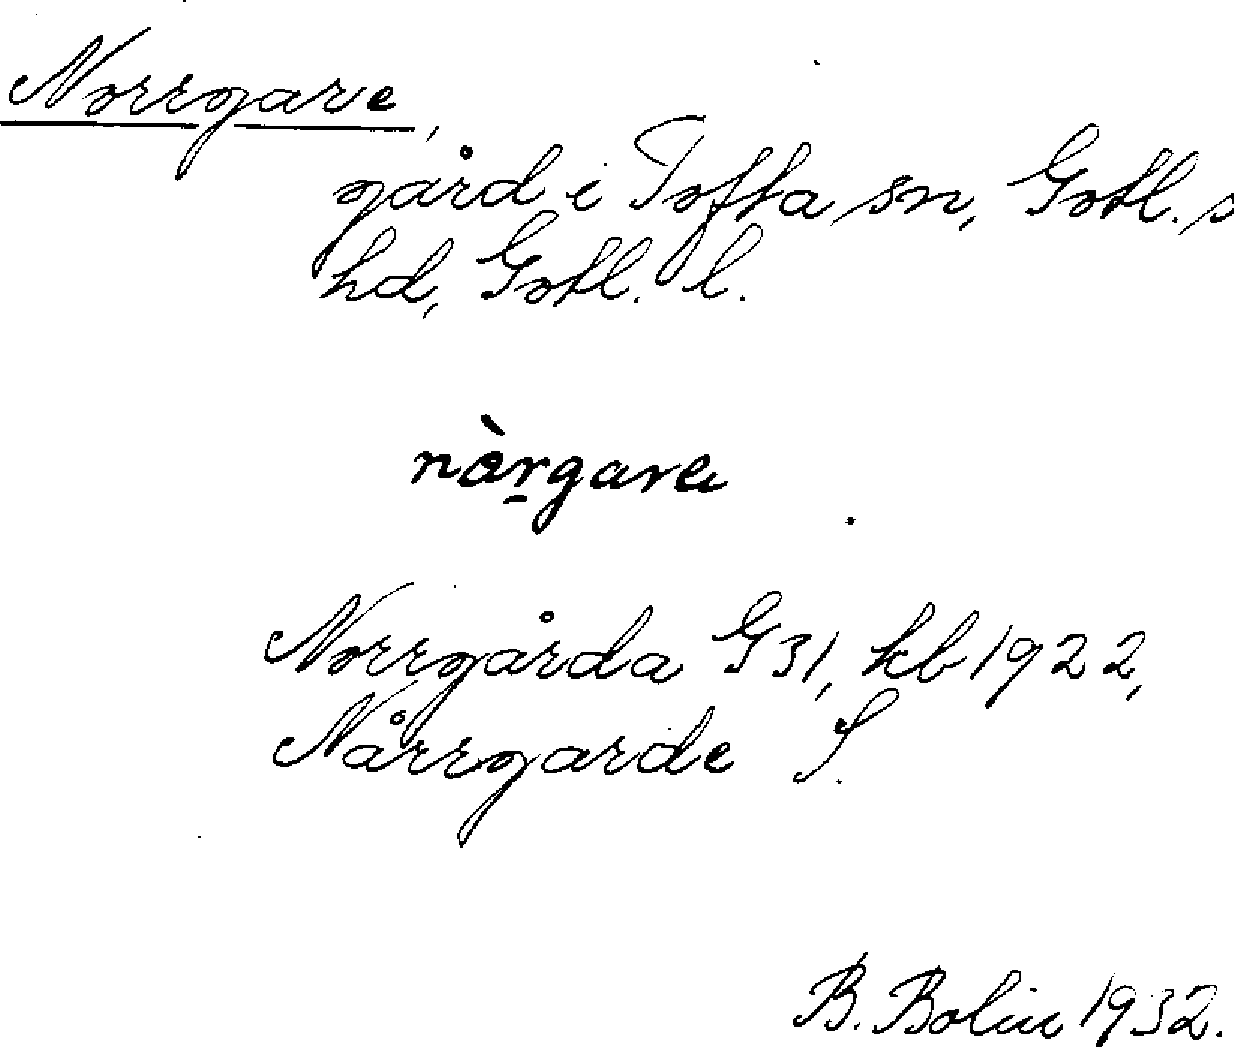 Norrgare,
gård i Tofta sn, Gotl. s
hd, Gotl. l.
nòrgare
Norrgårda G 31, kb 1922,
Nårrgarde S.
B. Bolin 1932.